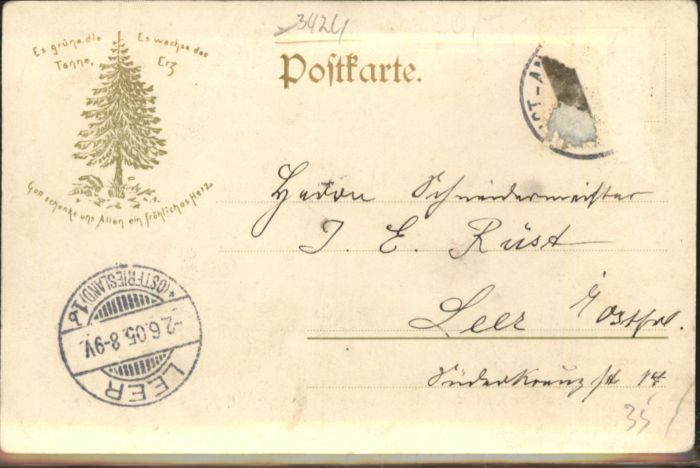 3424
Es grüne die Es wachse das
Tanne, Erz
Gott schenke uns Allen ein fröhliches Herz
Postkarte.
Herrn Schneidermeister
J. E. Rüst
Leer i/Ostfrl.
Süderkreuzstr 14
35
LEER
-2.6.05.8-9V.
*(OSTFRIESLAND)1a